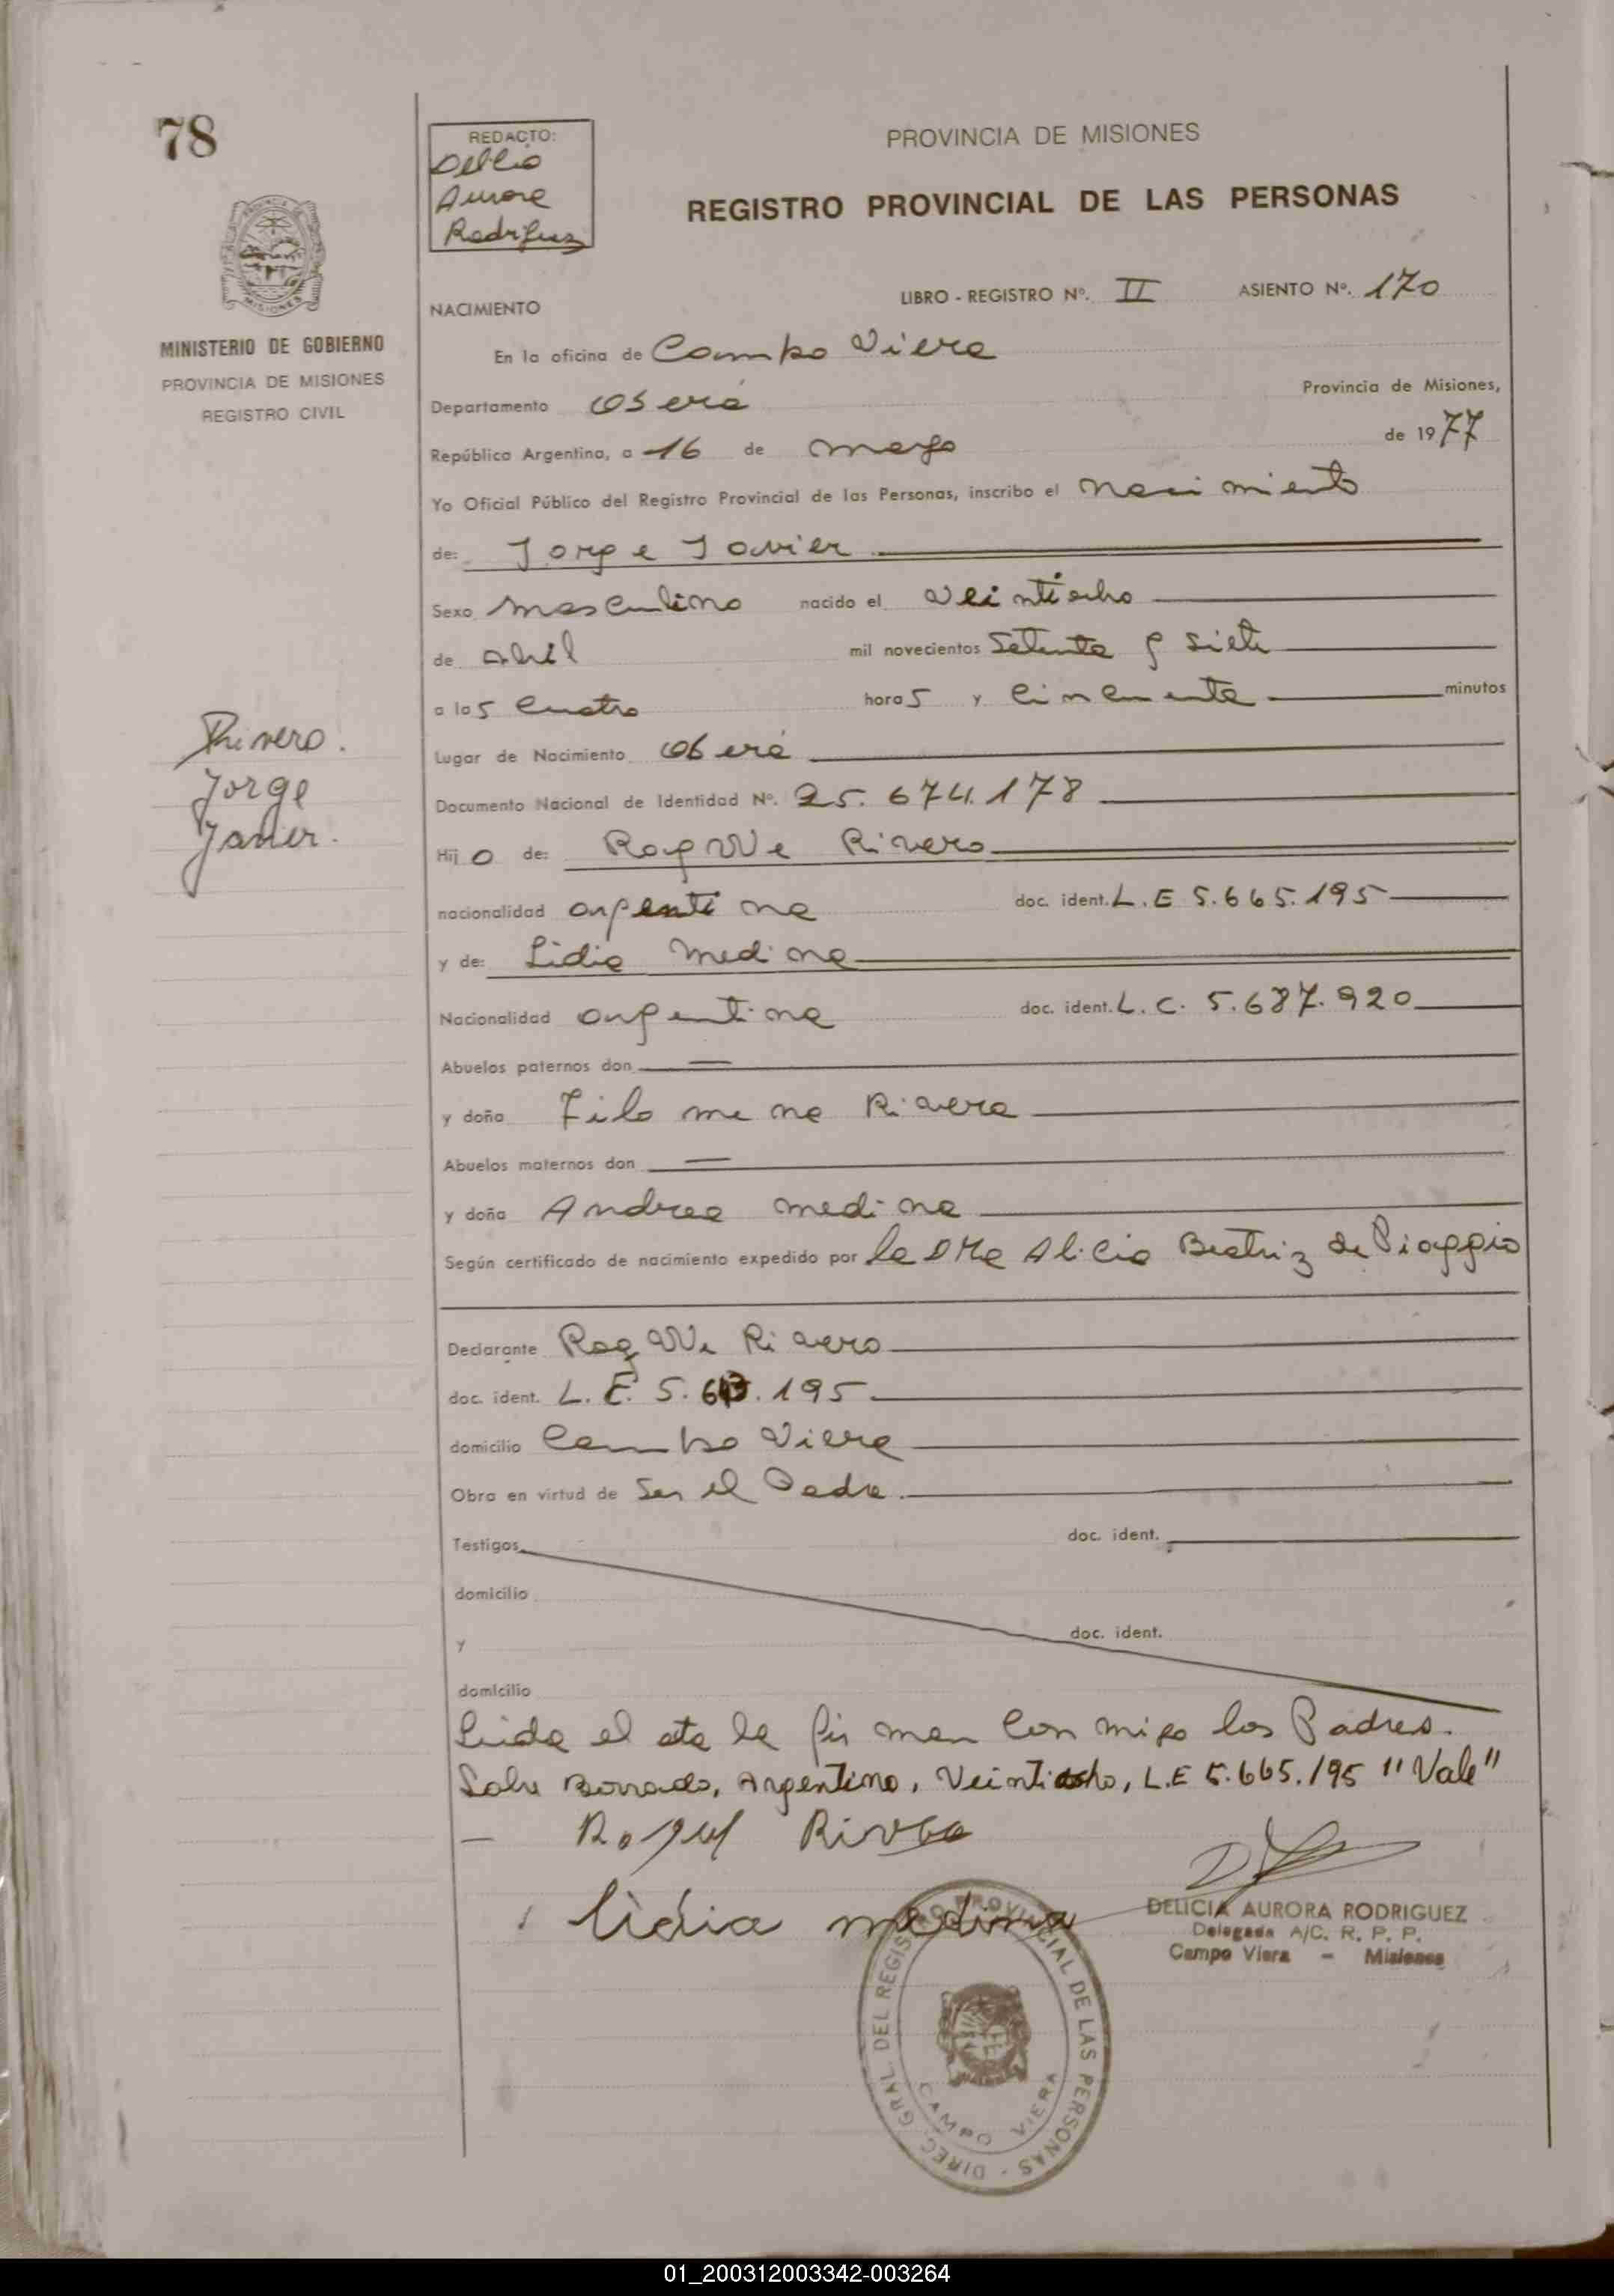 78
REDACTO:
Delicia
Aurora
Rodriguez
PROVINCIA DE MISIONES
REGISTRO PROVINCIAL DE LAS PERSONAS
LIBRO - REGISTRO Nº. II ASIENTO Nº. 170
NACIMIENTO
MINISTERIO DE GOBIERNO
PROVINCIA DE MISIONES
REGISTRO CIVIL
En la oficina de Campo Viera
Departamento Oberá Provincia de Misiones,
República Argentina, a 16 de mayo de 1977
Yo Oficial Público del Registro Provincial de las Personas, inscribo el nacimiento
de: Jorge Javier
Sexo masculino nacido el veintiocho
de abril mil novecientos setenta y siete
a las cuatro horas y cincuenta minutos
Rivero.
Jorge
Javier.
Lugar de Nacimiento Oberá
Documento Nacional de Identidad Nº. 25.674.178
Hijo de: Roque Rivero
nacionalidad argentina doc. ident. L.E 5.665.195
y de: Lidia Medina
Nacionalidad argentina doc. ident. L.C. 5.687.920
Abuelos paternos don —
y doña Filomena Rivera
Abuelos maternos don —
y doña Andrea medina
Según certificado de nacimiento expedido por la Dra Alicia Beatriz de Piaggio
Declarante Roque Rivero
doc. ident. L.E. 5. .195
domicilio Campo Viera
Obra en virtud de ser el Padre.
Testigos doc. ident.
domicilio
y doc. ident.
domicilio
Leida el ata la firman conmigo los Padres.
Sobre Borrado, Argentino, Veintiocho, L.E 5.665.195 "Vale"
— Roque Rivero
lidia medina
DELICIA AURORA RODRIGUEZ
Delegada A/C. R. P. P.
Campo Viera - Misiones
DIREC. GRAL. DEL REGISTRO PROVINCIAL DE LAS PERSONAS
CAMPO VIERA
01_200312003342-003264